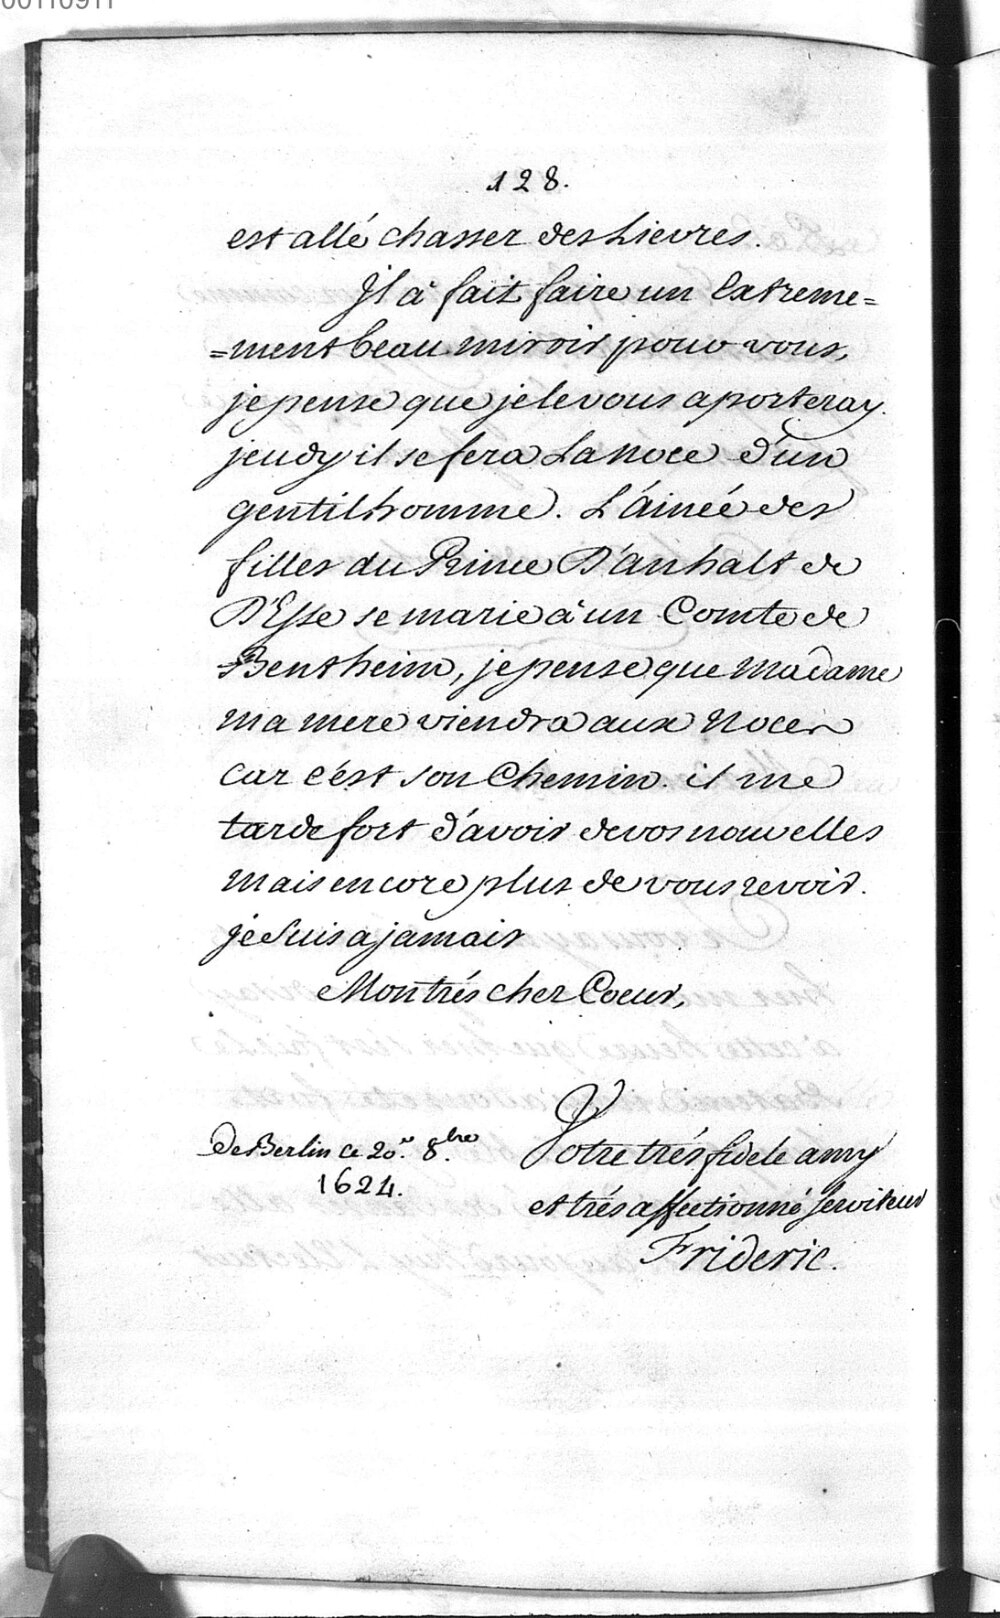 00110911
128.
est allé chasser des Lievres.
Jl à fait faire un Extreme=
=ment beau miroir pour vous,
je pense que je le vous aporteray.
jeudy il se fera La noce d'un
gentilhomme. L'ainée des
filles du Prince D'anhalt de
D'Esse se marie à un Comte de
Bentheim, je pense que Madame
ma mere viendra aux Noces
car c'est son Chemin. il me
tarde fort d'avoir de vos nouvelles
mais encore plus de vous revoir.
je Suis a jamais
Mon trés cher Coeur,
Votre trés fidele amy
et trés affectionné serviteur
Frideric.
De Berlin ce 20.e 8.bre
1624.